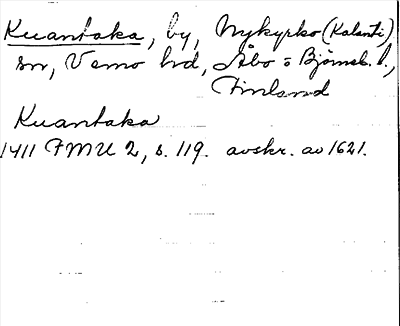 Kuantaka, by, Nykyrko (Kalanti)
sn, Vemo hd, Åbo o Björneb. l.,
Finland
Kuantaka
1411 FMU 2, s. 119. avskr. av 1621.